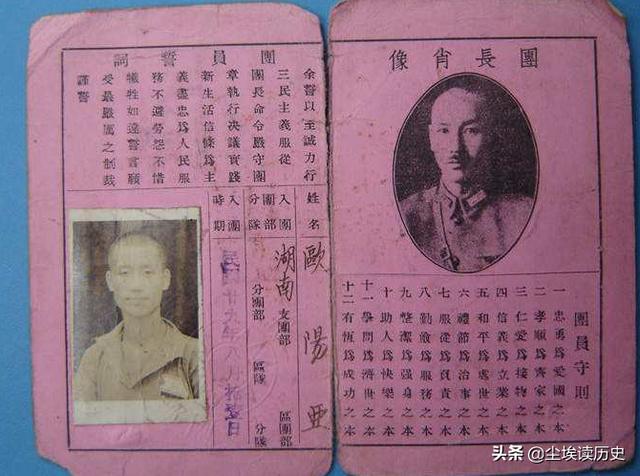 團長肖像
團員守則
一 忠勇為愛國之本
二 孝順為齊家之本
三 仁愛為接物之本
四 信義為立業之本
五 和平為處世之本
六 禮節為治事之本
七 服從為負責之本
八 勤儉為服務之本
九 整潔為强身之本
十 助人為快樂之本
十一 學問為濟世之本
十二 有恆為成功之本
團員誓詞
余誓以至誠力行
三民主義服從
團長命令嚴守團
章執行決議實踐
新生活信條為主
義盡忠為人民服
務不避勞怨不惜
犧牲如違誓言願
受最嚴厲之制裁
謹誓
姓名 歐陽亞
入團團部分隊
湖南支團部 區團部
分團部 區隊 分隊
入團時期
民國廿九年八月 日
头条 @尘埃读历史